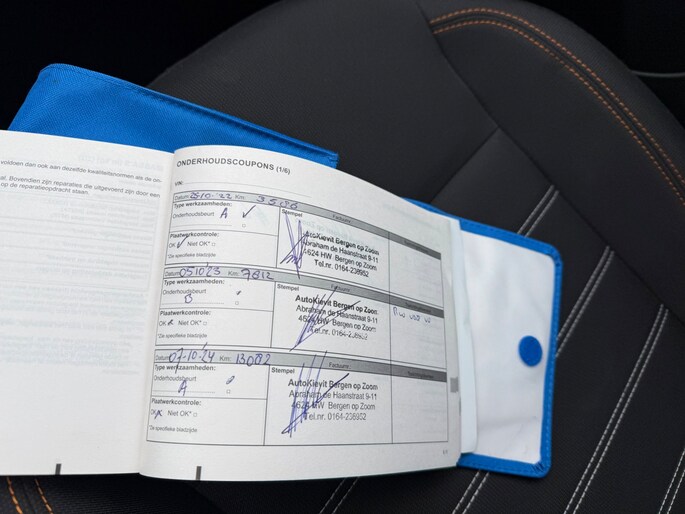 voldoen dan ook aan dezelfde kwaliteitsnormen als de on-
al. Bovendien zijn reparaties die uitgevoerd zijn door een
op de reparatieopdracht staan.
ONDERHOUDSCOUPONS (1/6)
VIN:
Datum: 05-10-'22 Km: 3506
Type werkzaamheden:
Stempel
Factuurnr.
Onderhoudsbeurt A ✓
Plaatwerkcontrole:
OK ✓ Niet OK* □
*Zie specifieke bladzijde
AutoKievit Bergen op Zoom
Abraham de Haanstraat 9-11
4624 HW Bergen op Zoom
Tel.nr. 0164-236952
Datum: 05 10 '23 Km:
Type werkzaamheden:
Stempel
Onderhoudsbeurt
B
Plaatwerkcontrole:
OK Niet OK* □
*Zie specifieke bladzijde
AutoKievit Bergen op Zoom
Abraham de Haanstraat 9-11
4624 HW Bergen op Zoom
Tel.nr. 0164-236952
Datum: 07-10-'24 Km: 13082
Type werkzaamheden:
Stempel
Factuurnr.
Onderhoudsbeurt
A
Plaatwerkcontrole:
OK x Niet OK* □
*Zie specifieke bladzijde
AutoKievit Bergen op Zoom
Abraham de Haanstraat 9-11
4624 HW Bergen op Zoom
Tel.nr. 0164-236952